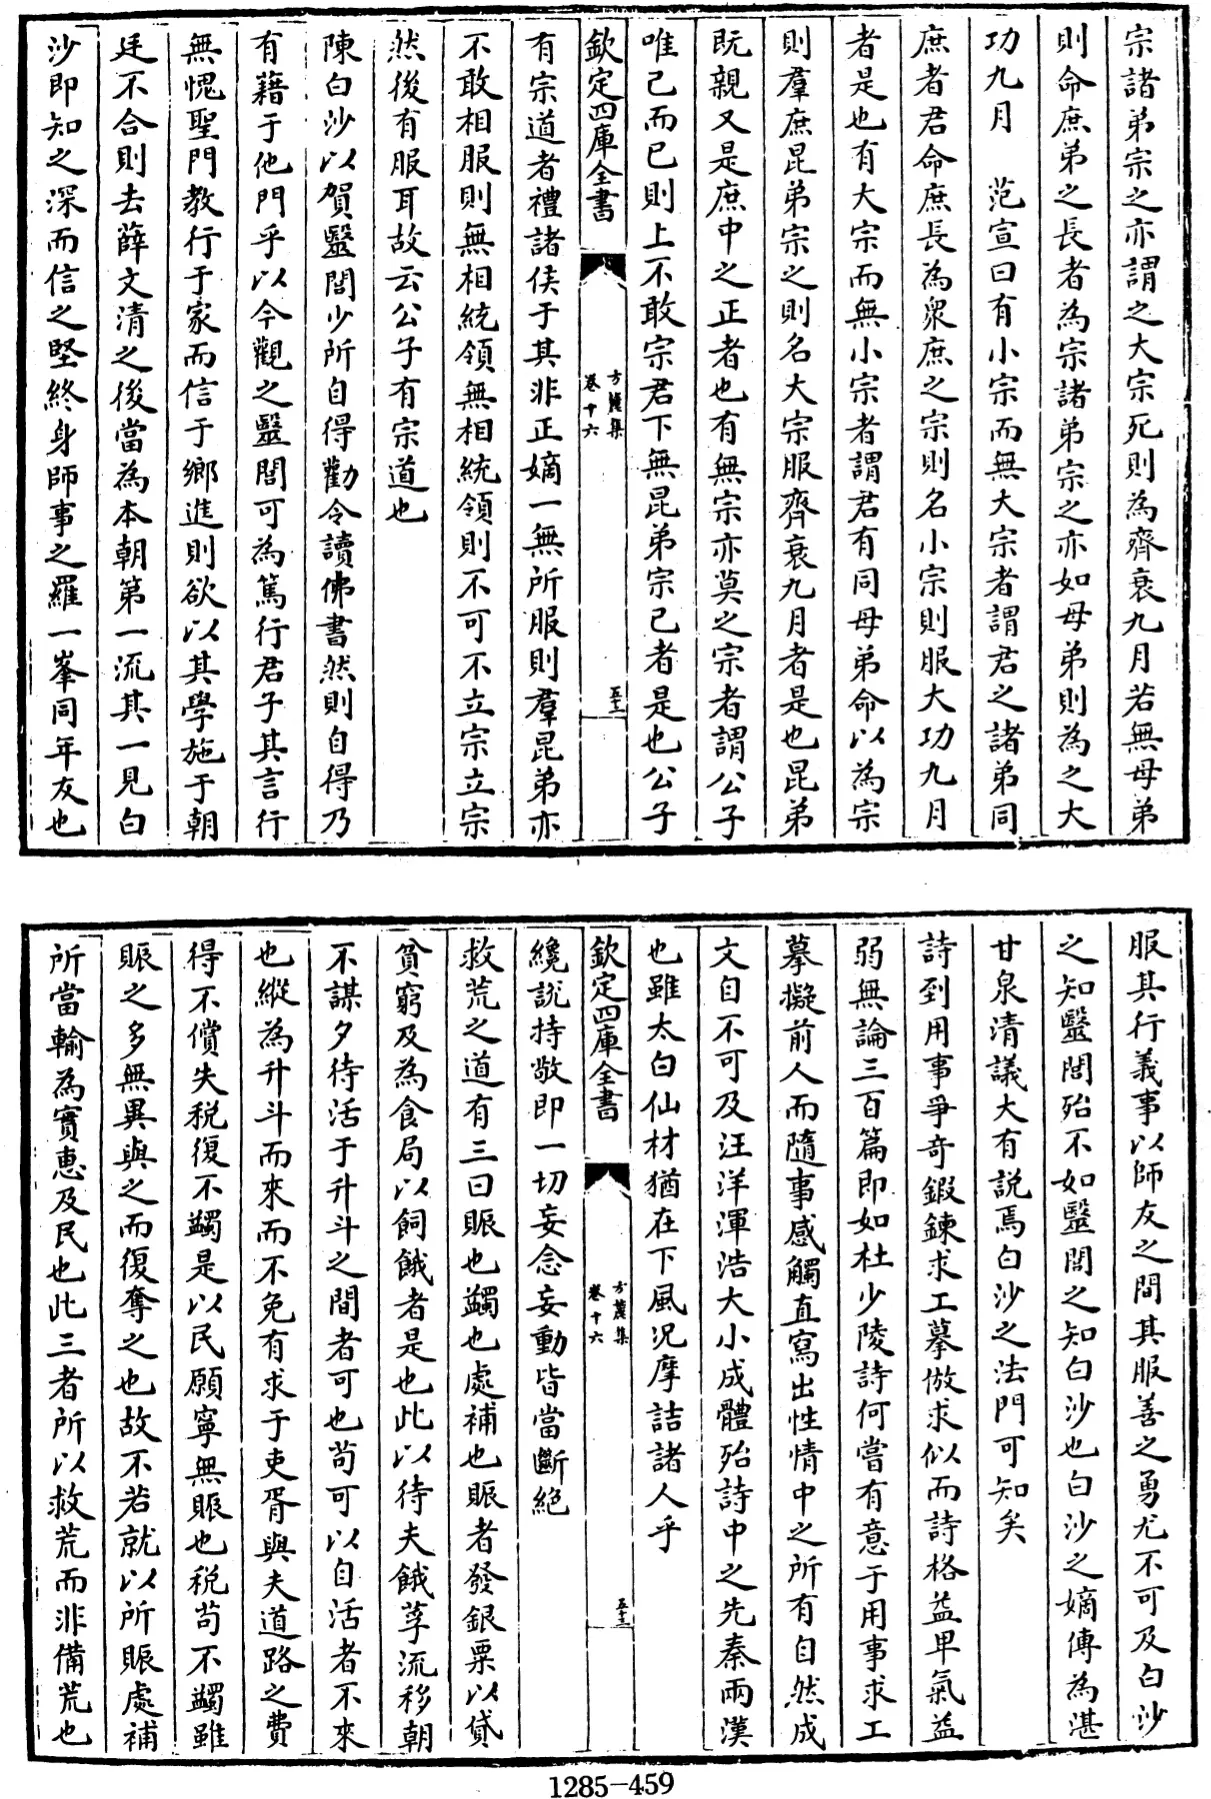 宗諸弟宗之亦謂之大宗死則為齊衰九月若無母弟
則命庶弟之長者為宗諸弟宗之亦如母弟則為之大
功九月　范宣曰有小宗而無大宗者謂君之諸弟同
庶者君命庶長為衆庶之宗則名小宗則服大功九月
者是也有大宗而無小宗者謂君有同母弟命以為宗
則羣庶昆弟宗之則名大宗服齊衰九月者是也昆弟
既親又是庶中之正者也有無宗亦莫之宗者謂公子
唯己而已則上不敢宗君下無昆弟宗己者是也公子
欽定四庫全書
方麓集
卷十六
五十二
有宗道者禮諸侯于其非正嫡一無所服則羣昆弟亦
不敢相服則無相統領無相統領則不可不立宗立宗
然後有服耳故云公子有宗道也
陳白沙以賀毉閭少所自得勸令讀佛書然則自得乃
有藉于他門乎以今觀之毉閭可為篤行君子其言行
無愧聖門教行于家而信于鄉進則欲以其學施于朝
廷不合則去薛文清之後當為本朝第一流其一見白
沙即知之深而信之堅終身師事之羅一峯同年友也
服其行義事以師友之間其服善之勇尤不可及白沙
之知毉閭殆不如毉閭之知白沙也白沙之嫡傳為湛
甘泉清議大有説焉白沙之法門可知矣
詩到用事爭奇鍛鍊求工摹倣求似而詩格益卑氣益
弱無論三百篇即如杜少陵詩何嘗有意于用事求工
摹擬前人而隨事感觸直寫出性情中之所有自然成
文自不可及汪洋渾浩大小成體殆詩中之先秦兩漢
也雖太白仙材猶在下風况摩詰諸人乎
欽定四庫全書
方麓集
卷十六
五十三
纔説持敬即一切妄念妄動皆當斷絶
救荒之道有三曰賑也蠲也處補也賑者發銀粟以貸
貧窮及為食局以飼餓者是也此以待夫餓莩流移朝
不謀夕待活于升斗之間者可也苟可以自活者不來
也縱為升斗而來而不免有求于吏胥與夫道路之費
得不償失税復不蠲是以民願寧無賑也税苟不蠲雖
賑之多無異與之而復奪之也故不若就以所賑處補
所當輸為實惠及民也此三者所以救荒而非備荒也
1285-459